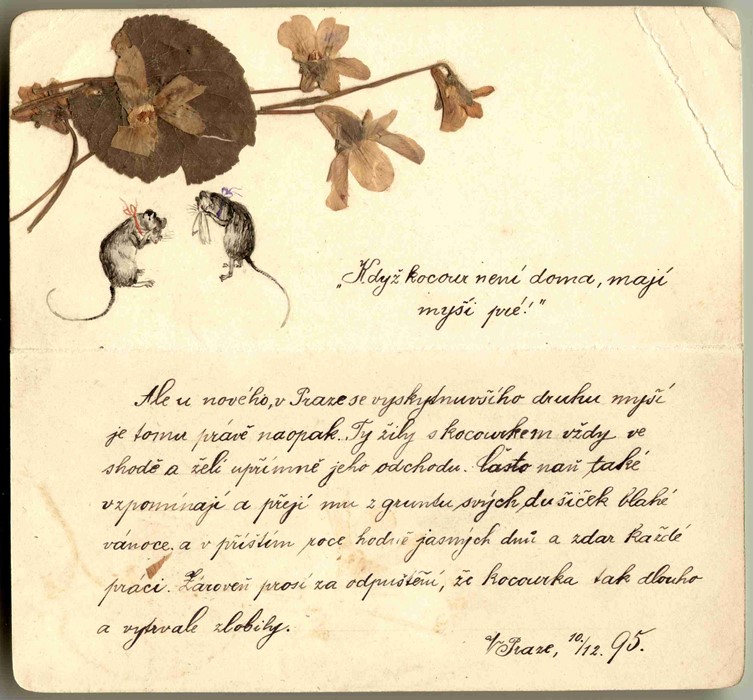 „Když kocour není doma, mají
myši pré!"
Ale u nového, v Praze se vyskytnuvšího druhu myší
je tomu právě naopak. Ty žily s kocourkem vždy ve
shodě a želí upřímně jeho odchodu. Často naň také
vzpomínají a přejí mu z gruntu svých dušiček blahé
vánoce a v příštím roce hodně jasných dnů a zdar každé
práci. Zároveň prosí za odpuštění, že kocourka tak dlouho
a vytrvale zlobily.
V Praze, 10./12. 95.